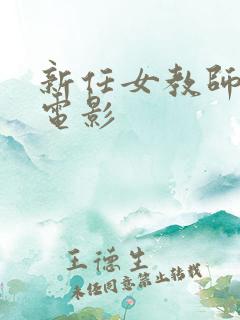 新任女教師
電影
王德生
未经同意禁止转载